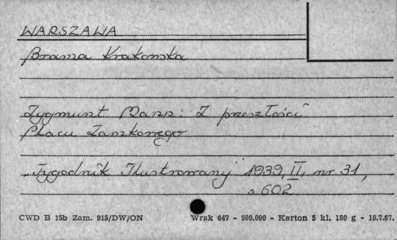 WARSZAWA
Brama Krakowska
Zygmunt Mann: Z przeszłości
Placu Zamkowego
"Tygodnik Ilustrowany" 1939, II, nr 31,
s 602
CWD B 15b Zam. 915/DW/ON Wrak 647 - 980.000 - Karton 5 kl. 180 g - 10.7.67.